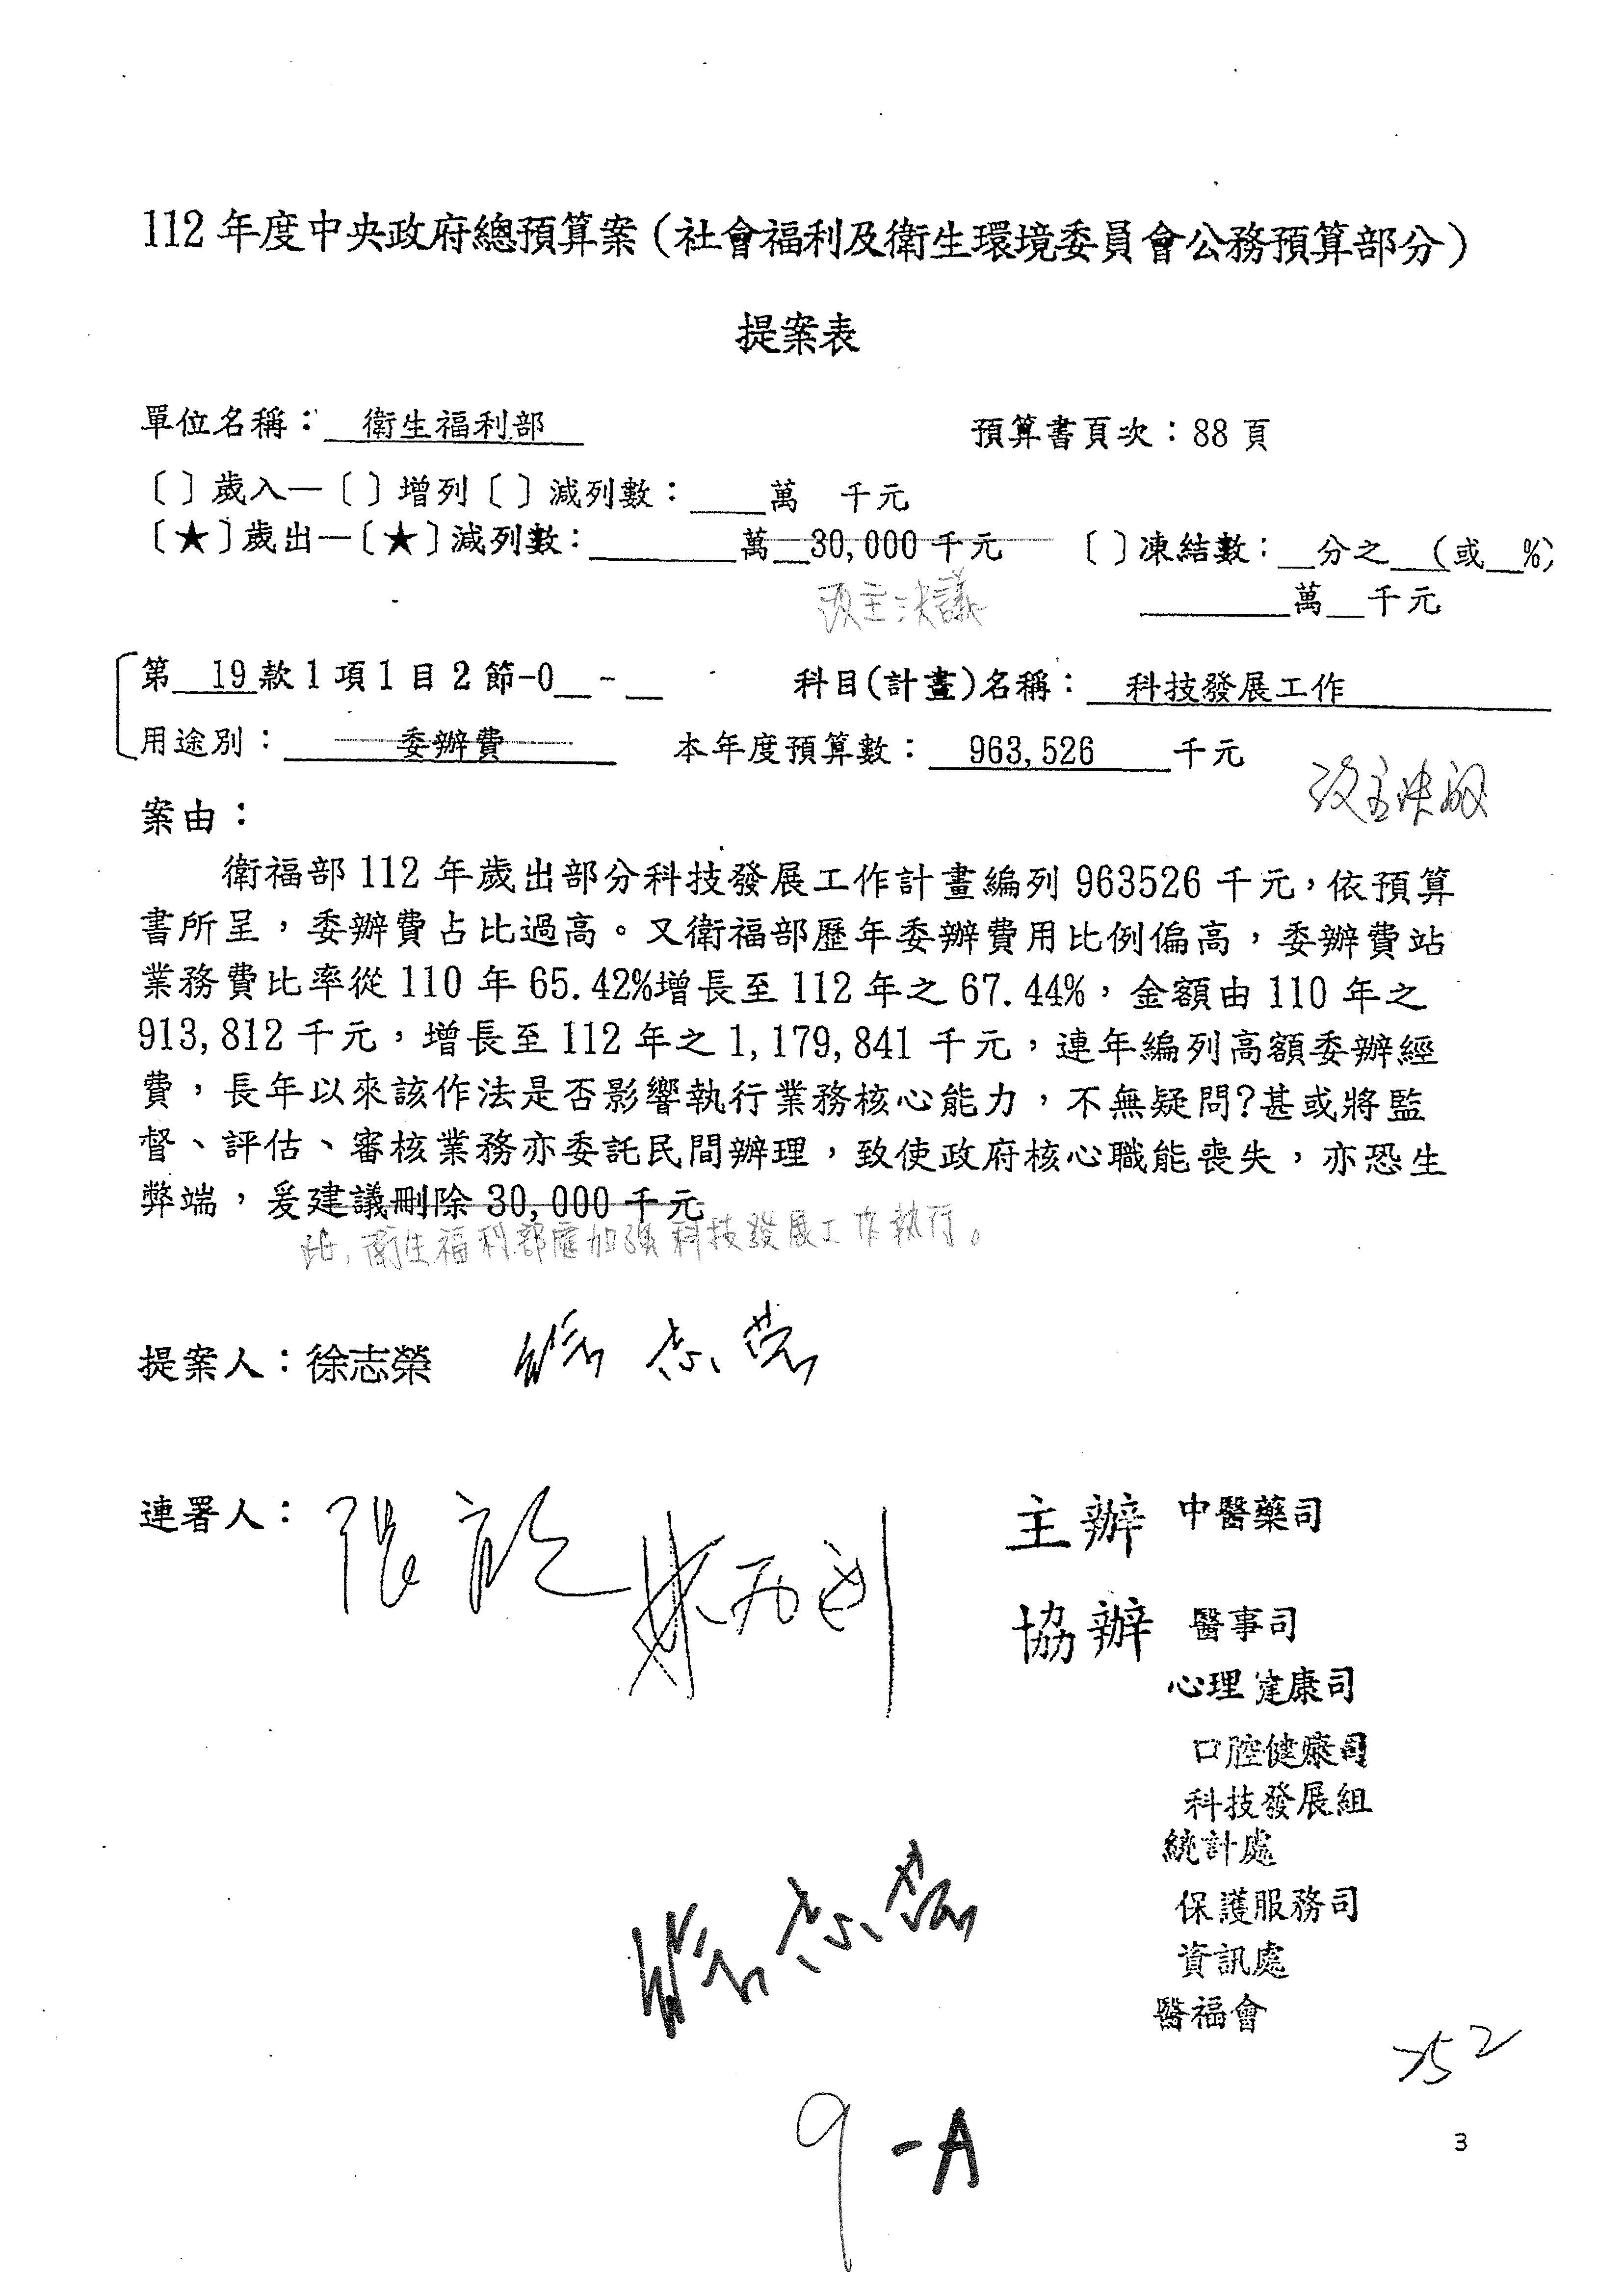 112年度中央政府總預算案（社會福利及衛生環境委員會公務預算部分）
提案表
單位名稱：衛生福利部 預算書頁次：88頁
〔〕歲入—〔〕增列〔〕減列數：____萬 千元
〔★〕歲出—〔★〕減列數：________萬__30,000千元 〔〕凍結數：__分之__(或__%)
改主決議 ________萬__千元
第__19款1項1目2節-0__-__ 科目(計畫)名稱：科技發展工作
用途別：委辦費 本年度預算數：963,526千元
改主決議
案由：
衛福部112年歲出部分科技發展工作計畫編列963526千元，依預算
書所呈，委辦費占比過高。又衛福部歷年委辦費用比例偏高，委辦費站
業務費比率從110年65.42%增長至112年之67.44%，金額由110年之
913,812千元，增長至112年之1,179,841千元，連年編列高額委辦經
費，長年以來該作法是否影響執行業務核心能力，不無疑問?甚或將監
督、評估、審核業務亦委託民間辦理，致使政府核心職能喪失，亦恐生
弊端，爰建議刪除30,000千元
此，衛生福利部應加強科技發展工作執行。
提案人：徐志榮 徐志榮
連署人：
主辦 中醫藥司
協辦 醫事司
心理健康司
口腔健康司
科技發展組
統計處
保護服務司
資訊處
醫福會
徐志榮
9-A
3